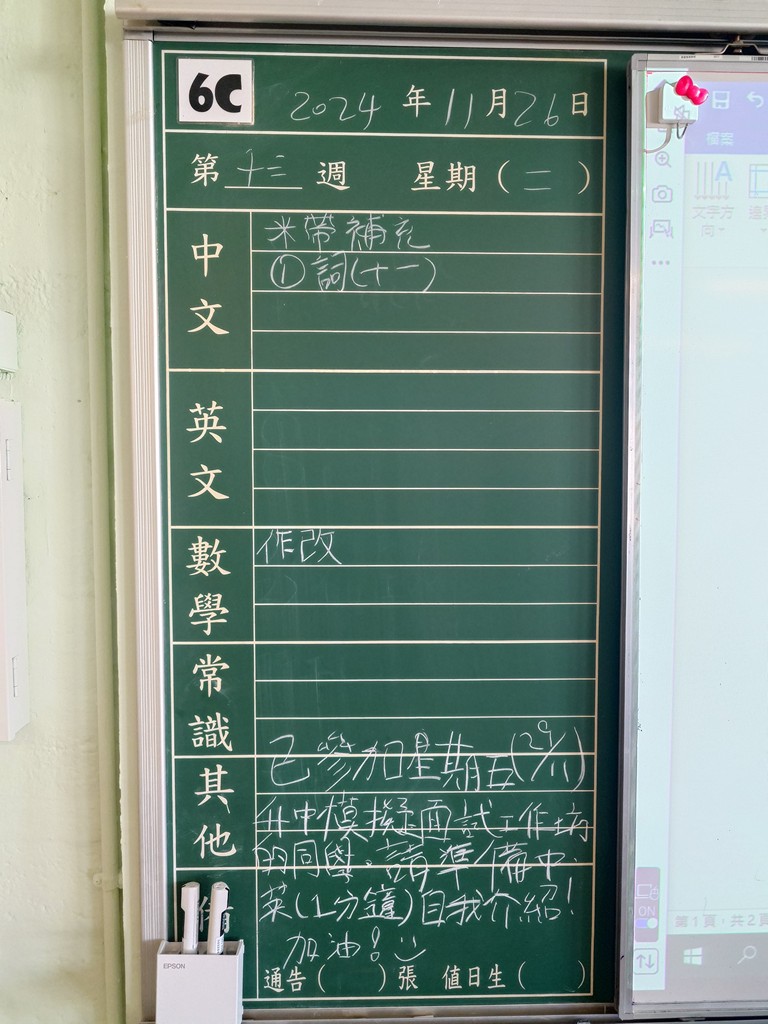 6C
2024年11月26日
第十三週 星期(二)
中文
米帶補充
①詞(十一)
英文
數學
作改
常識
其他
已參加星期五(29/11)
升中模擬面試工作坊
的同學,請準備中、
英(1分鐘)自我介紹!
加油!
通告( )張 值日生( )
EPSON
檔案
A
文字方
向
ON
第1頁,共2頁